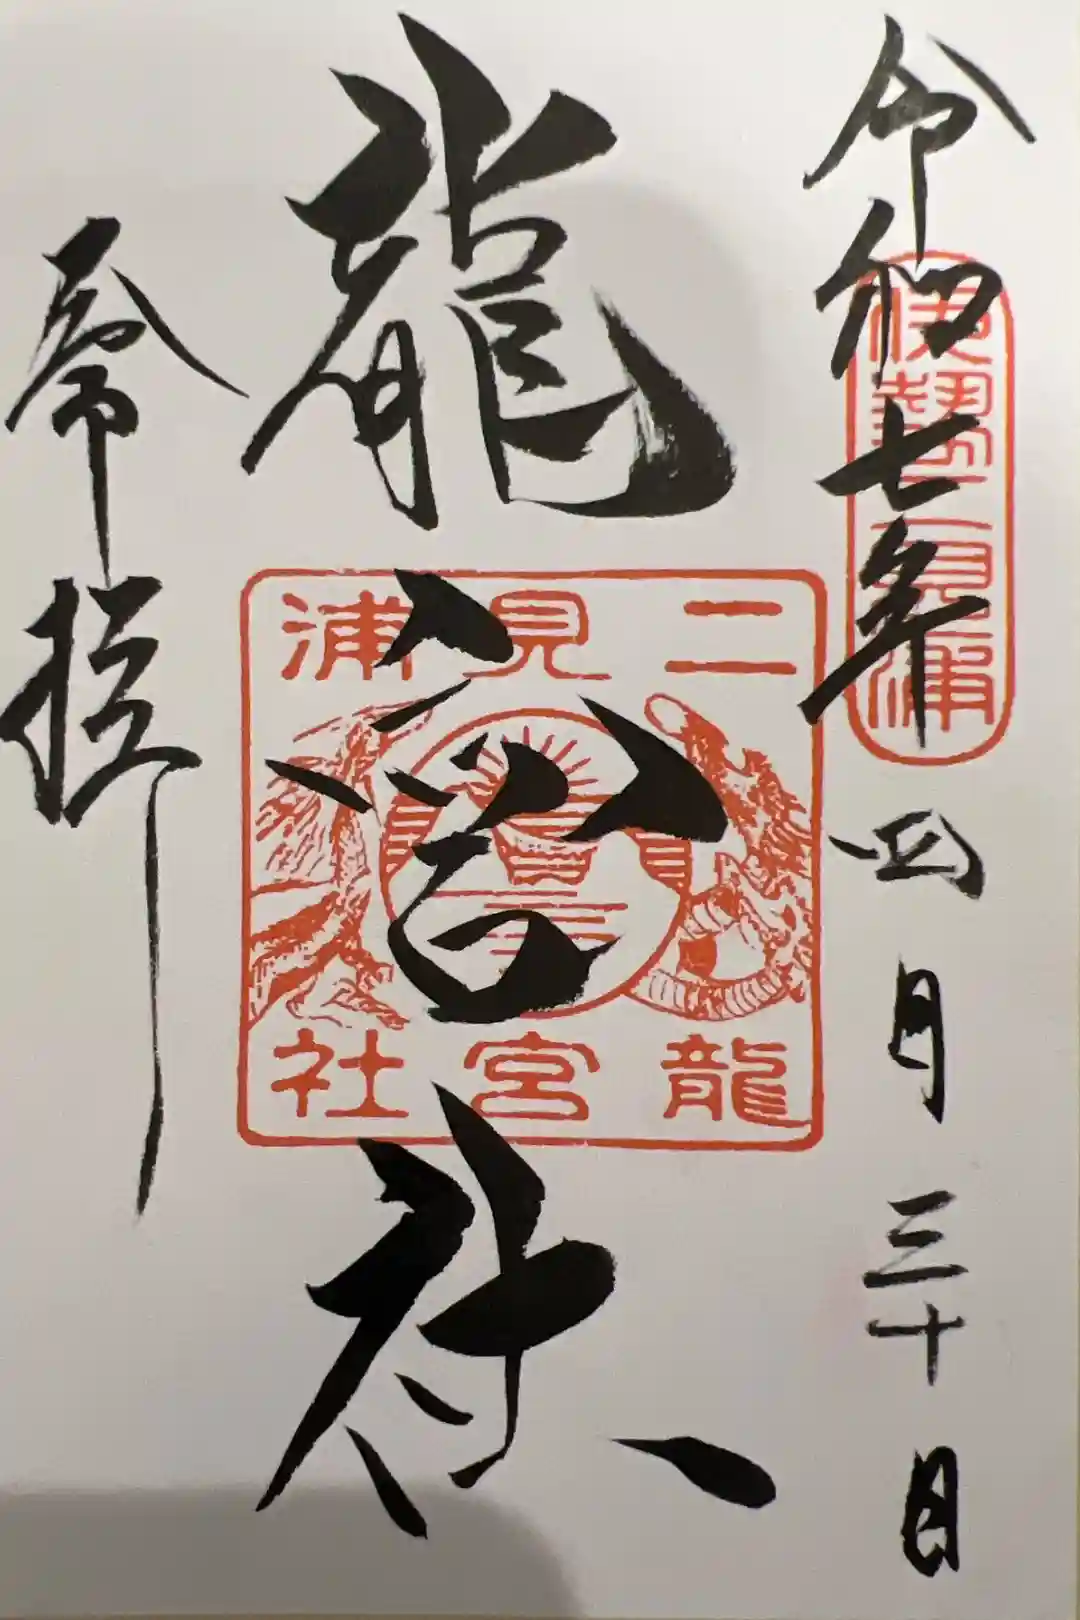 令和七年四月三十日
伊勢二見浦
龍宮社
二見浦
龍宮社
奉拝